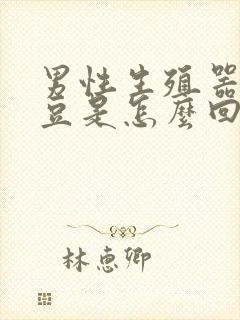 男性生殖器
豆是怎麼回
林惠卿